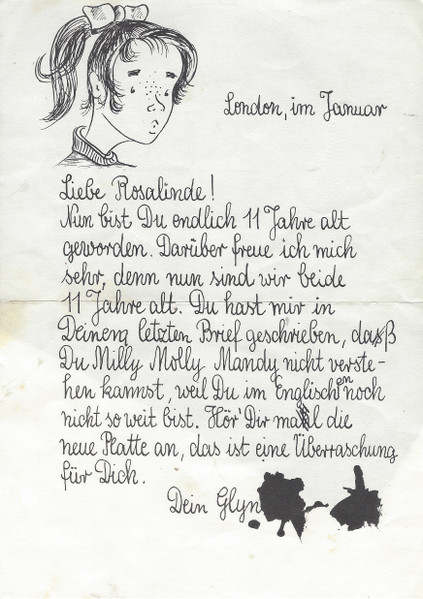 London, im Januar
Liebe Rosalinde!
Nun bist Du endlich 11 Jahre alt
geworden. Darüber freue ich mich
sehr, denn nun sind wir beide
11 Jahre alt. Du hast mir in
Deinem letzten Brief geschrieben, daß
Du Milly Molly Mandy nicht verste-
hen kannst, weil Du im Englischen noch
nicht so weit bist. Hör' Dir mal die
neue Platte an, das ist eine Überraschung
für Dich.
Dein Glyn